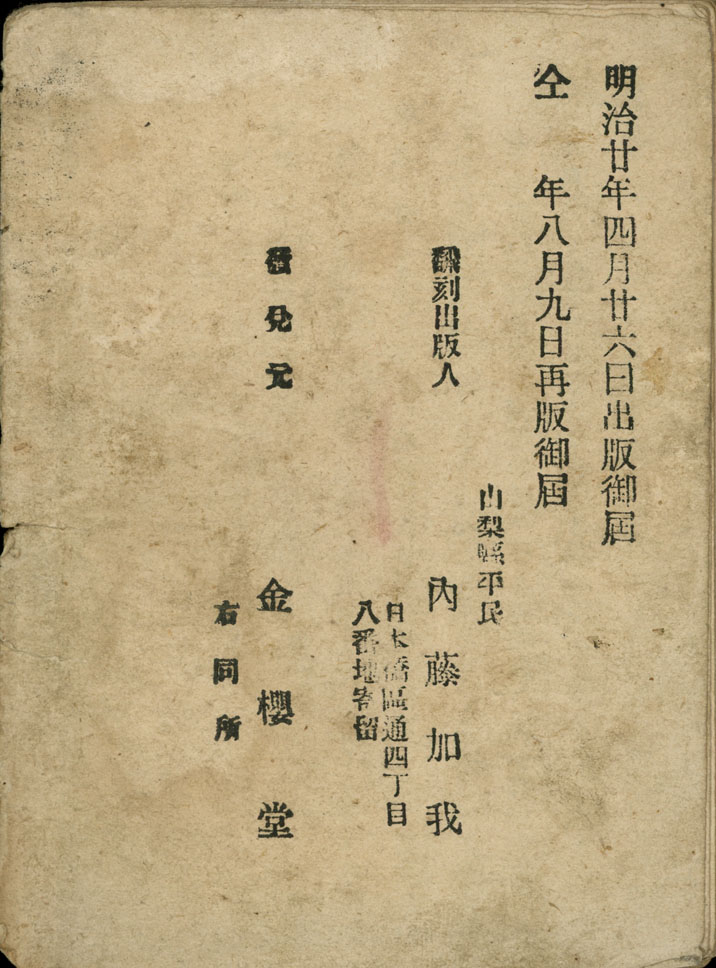 明治廿年四月廿六日出版御屆
仝　年八月九日再版御屆
山梨縣平民
飜刻出版人　内藤加我
日本橋區通四丁目
八番地寄留
發兌元　金櫻堂
右同所